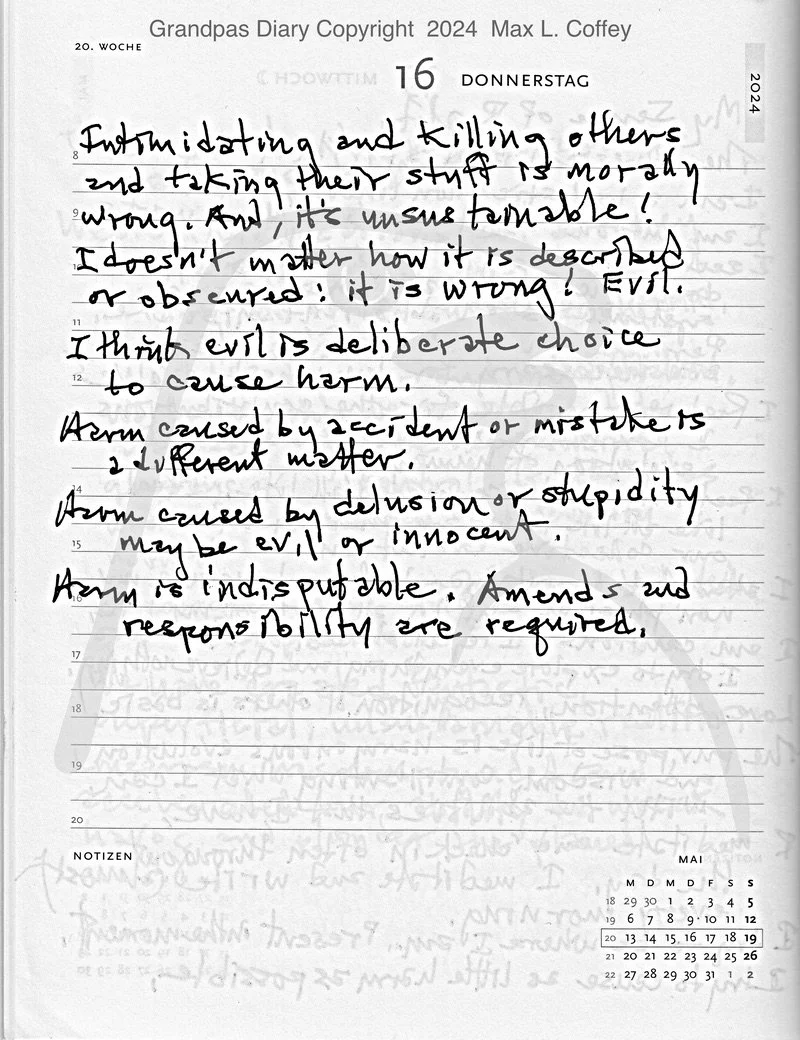 Grandpas Diary Copyright 2024 Max L. Coffey
20. WOCHE
16 DONNERSTAG
2024
8 Intimidating and killing others
and taking their stuff is morally
9 wrong. And, it's unsustainable!
10 I doesn't matter how it is described
or obscured: it is wrong! Evil.
11
I think evil is deliberate choice
12 to cause harm.
Harm caused by accident or mistake is
a different matter.
14
Harm caused by delusion or stupidity
15 may be evil or innocent.
16 Harm is indisputable. Amends and
responsibility are required.
17
18
19
20
NOTIZEN
MAI
M D M D F S S
18 29 30 1 2 3 4 5
19 6 7 8 9 10 11 12
20 13 14 15 16 17 18 19
21 20 21 22 23 24 25 26
22 27 28 29 30 31 1 2